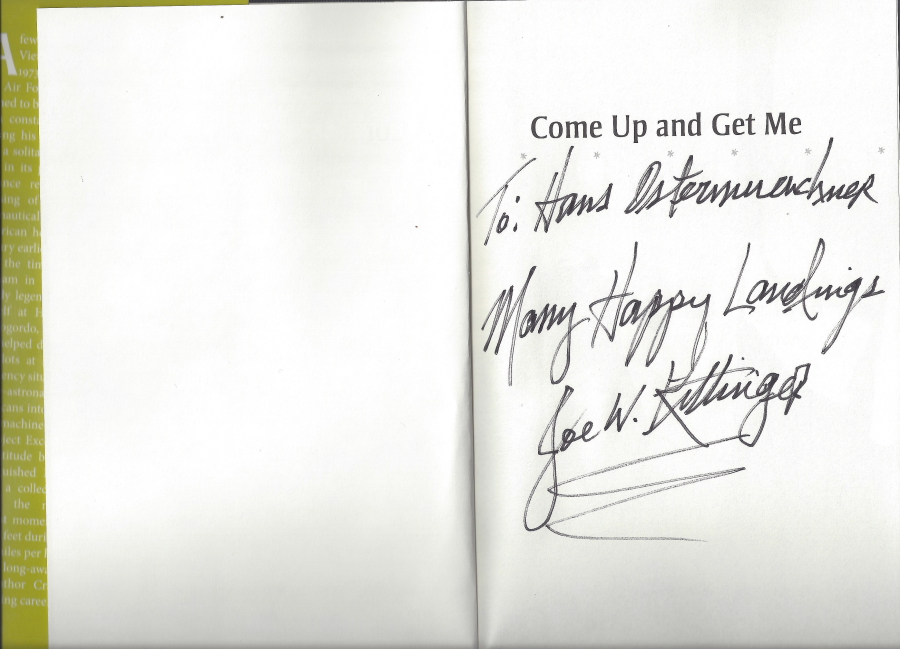 A few
Vie
1973
Air Fo
ed to b
const
ng his
a solita
in its
nce re
ing of
nautical
rican h
ry earli
the tim
am in
ly legen
lf at H
ogordo,
elped d
lots at
ency situ
-astrona
cans int
machine
ject Exc
titude b
uished
a collec
the
t mome
feet duri
iles per
long-awa
thor Cr
ng caree
Come Up and Get Me
To: Hans Ostermuenchner
Many Happy Landings
Joe W. Kittinger